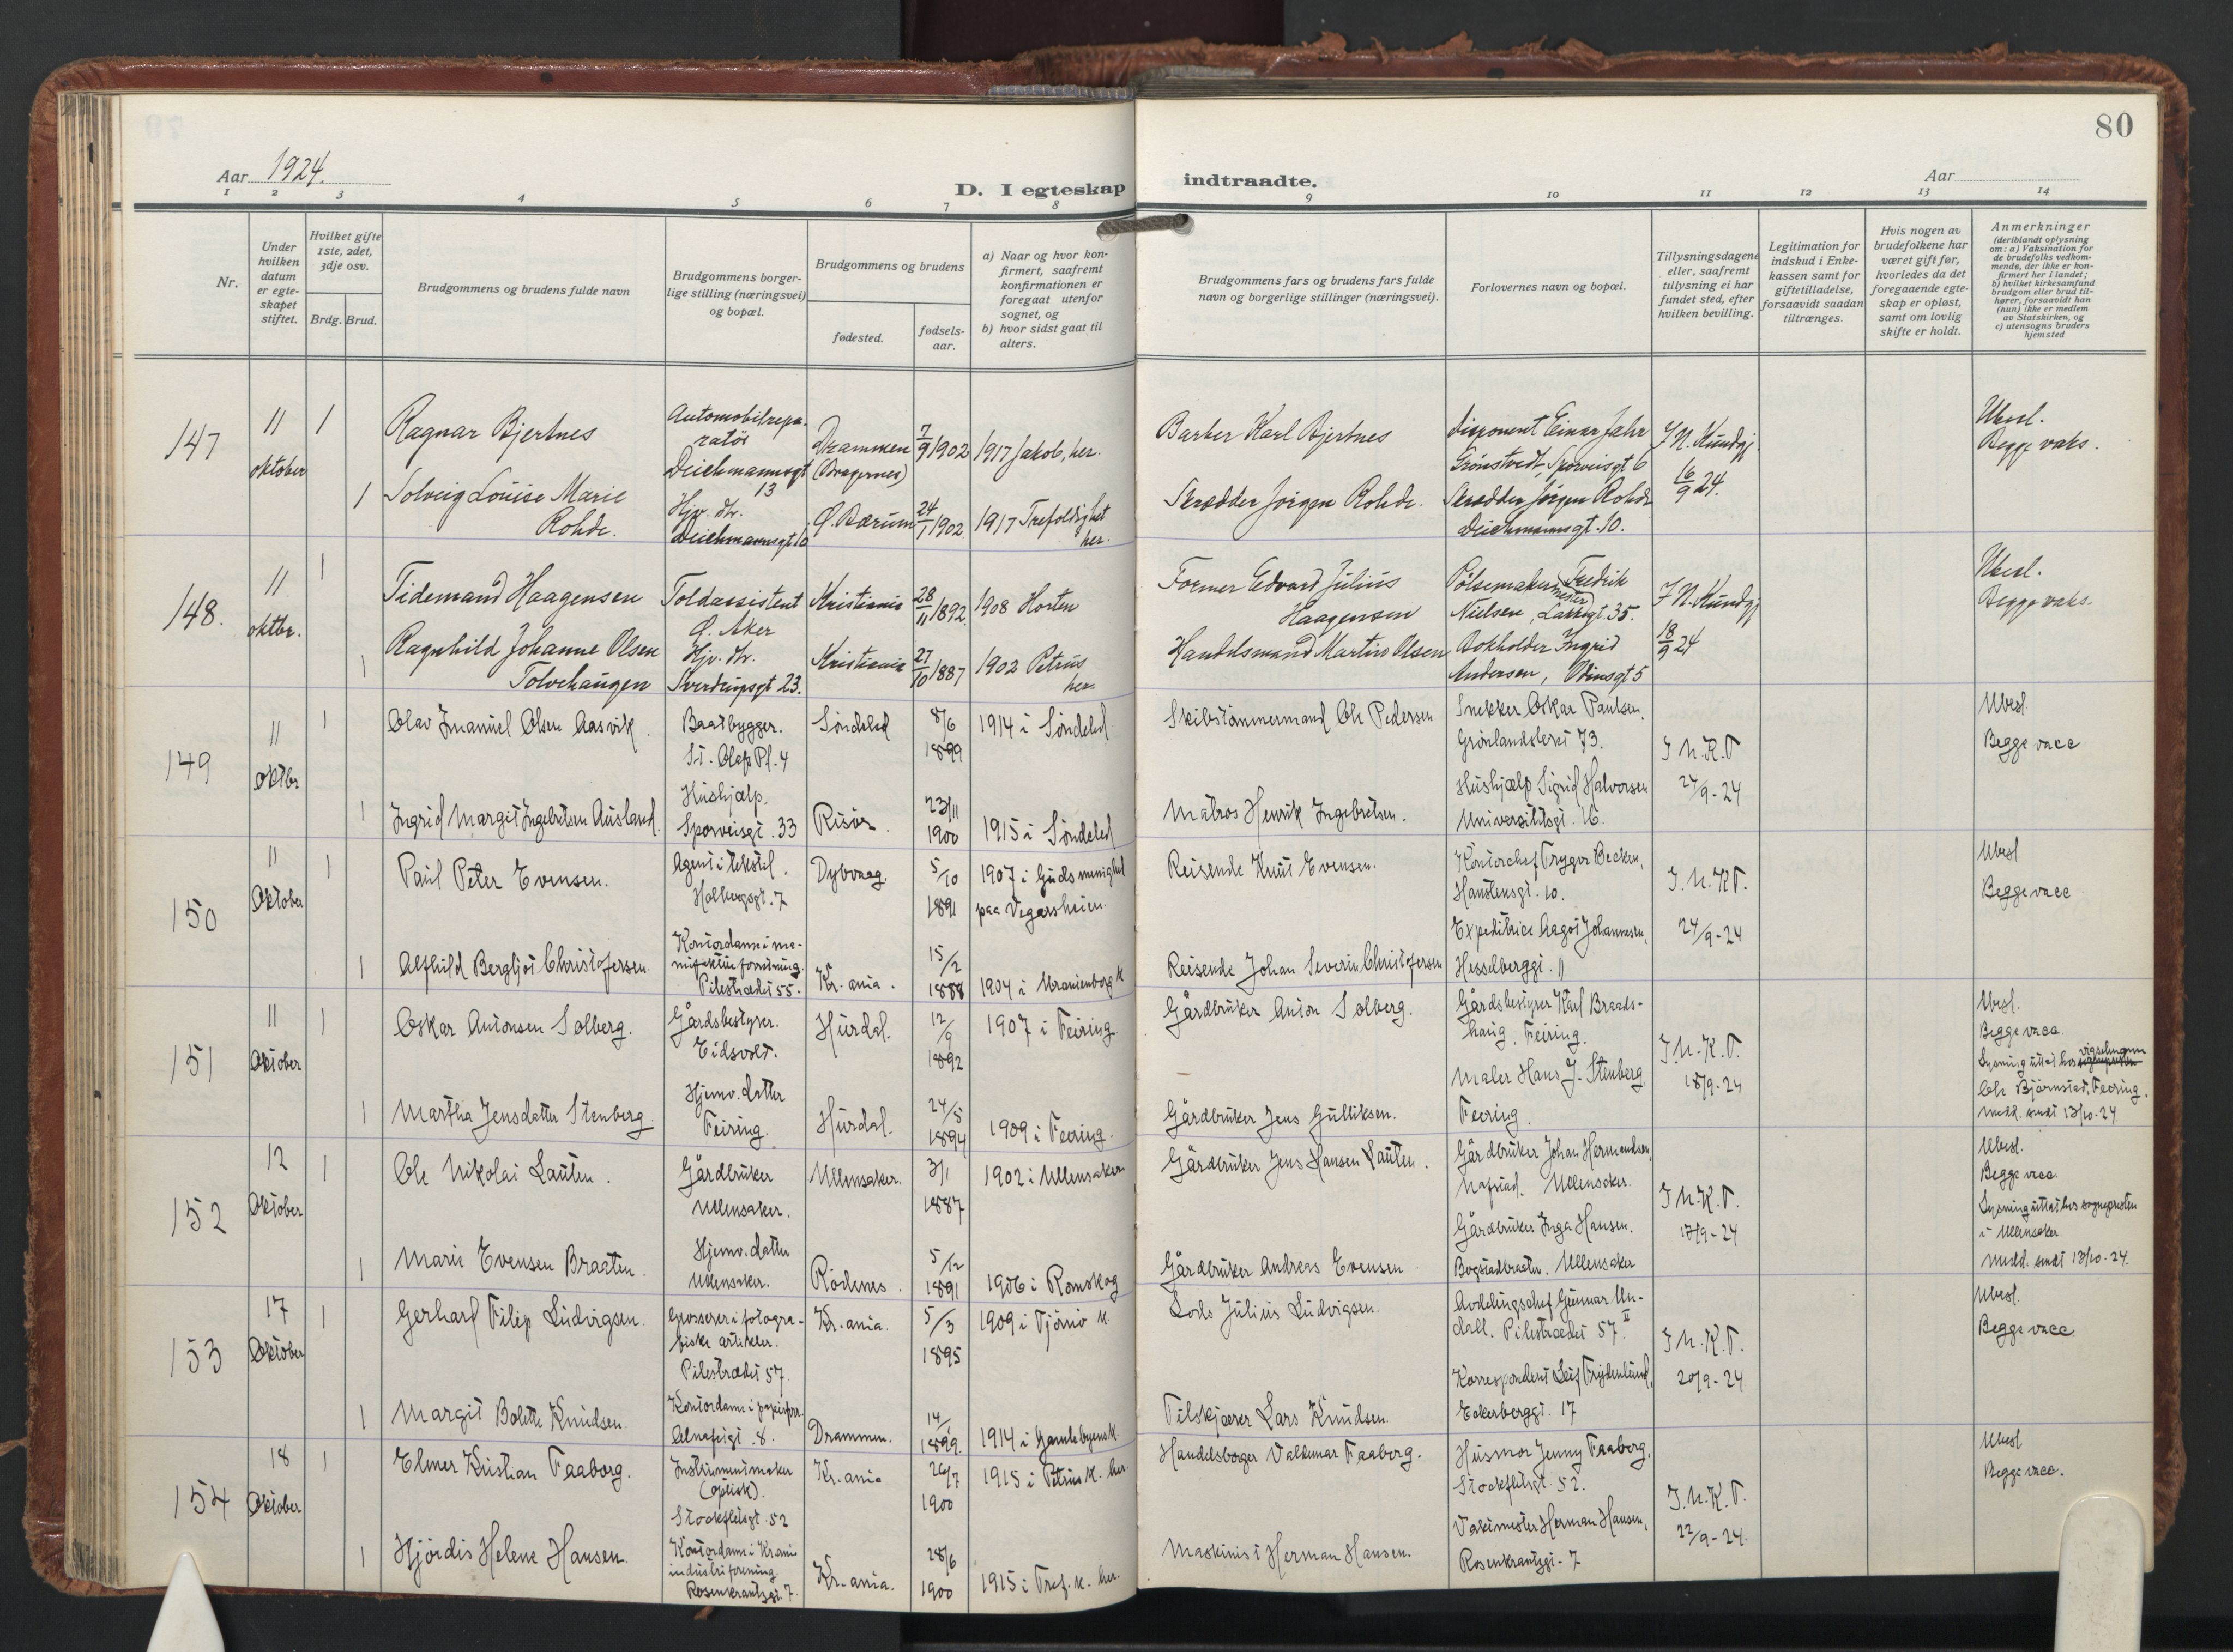 80
Aar 1924.
D. I egteskap indtraadte.
Aar
1 2 3 4 5 6 7 8 9 10 11 12 13 14
Nr.
Under hvilken datum er egteskapet stiftet.
Hvilket gifte 1ste, 2det, 3dje osv.
Brdg. Brud.
Brudgommens og brudens fulde navn
Brudgommens borgerlige stilling (næringsvei) og bopæl.
Brudgommens og brudens
fødested.
fødselsaar.
a) Naar og hvor konfirmert, saafremt konfirmationen er foregaat utenfor sognet, og
b) hvor sidst gaat til alters.
Brudgommens fars og brudens fars fulde navn og borgerlige stillinger (næringsvei).
Forlovernes navn og bopæl.
Tillysningsdagene eller, saafremt tillysning ei har fundet sted, efter hvilken bevilling.
Legitimation for indskud i Enkekassen samt for giftetilladelse, forsaavidt saadan tiltrænges.
Hvis nogen av brudefolkene har været gift før, hvorledes da det foregaaende egteskap er opløst, samt om lovlig skifte er holdt.
Anmerkninger (deriblandt oplysning om: a) Vaksination for de brudefolks vedkommende, der ikke er konfirmert her i landet; b) hvilket kirkesamfund brudgom eller brud tilhører, forsaavidt han (hun) ikke er medlem av Statskirken, og c) utensogns bruders hjemsted
147 11 oktober 1 Ragnar Bjertnes Automobilreparatör Deichmannsgt 13 Drammen (Bragernes) 7/9 1902 1917 Jakob, her. Barber Karl Bjertnes Disponent Einar Jahr Grönstvedt, Sporveisgt 6 I N. Kundgj. 16/9 24. Ubesl. Begge vaks.
1 Solveig Louise Marie Rohde. Hjv. dtr. Deichmannsgt 10 Ø. Bærum 24/1 1902. 1917 Trefoldighet her. Skrædder Jörgen Rohde. Skrædder Jörgen Rohde Deichmannsgt. 10.
148. 11 oktbr. 1 Tidemand Haagensen Toldassistent Ø. Aker Kristiania 28/11 1892. 1908 Horten Former Edvard Julius Haagensen Pölsemakermester Fredrik Nielsen, Lakkegt. 35. I N. Kundgj 18/9 24 Ubesl. Begge vaks.
1 Ragnhild Johanne Olsen Tolvehaugen Hjv. dtr. Sverdrupsgt 23. Kristiania 27/10 1887 1902 Petrus her. Handelsmand Martin Olsen Bokholder Ingrid Andersen, Odinsgt 5
149 11 oktbr 1 Olav Imanuel Olsen Aasvik. Baatbygger. St. Olafs Pl. 4 Söndeled 8/6 1899 1914 i Söndeled. Skibstömmermand Ole Pedersen Snekker Oskar Paulsen, Grönlandsleret 73. I N.K.T. 24/9-24 Ubesl. Begge vacc
1 Ingrid Margit Ingebretsen Ausland. Hushjælp. Sporveisgt. 33 Risör. 23/11 1900 1915 i Söndeled Matros Henrik Ingebretsen. Hushjælp Sigrid Halvorsen Universitetsgt. 16.
150 11 Oktober 1 Paul Peter Evensen. Agent i tekstil. Holbergsgt. 7 Dybvaag. 5/10 1891 1907 i Guds menighet paa Vegarsheien. Reisende Knut Evensen. Kontorchef Trygve Becken, Hanstensgt. 10. I.N.K.T. 24/9-24 Ubesl Begge vacc.
1 Alfhild Bergljot Christofersen. Kontordame i manufakturforretning. Pilestrædet 55. Kr.ania. 15/2 1888 1904 i Uranienborg k Reisende Johan Severin Christofersen Expeditrice Aagot Johannesen, Hesselberggt. 11
151 11 Oktober 1 Oskar Antonsen Solberg. Gårdsbestyrer. Eidsvold. Hurdal. 12/9 1892 1907 i Feiring Gårdbruker Anton Solberg. Gårdsbestyrer Karl Braadshaug, Feiring. I.N.K.T. 18/9-24 Ubesl. Begge vacc. Lysning uttat hos vigselmann Ole Björnstad, Feiring. Medd. sendt 13/10-24
1 Martha Jensdatter Stenberg. Hjemv. datter Feiring. Hurdal. 24/5 1894 1909 i Feiring. Gårdbruker Jens Gulliksen. Maler Hans J. Stenberg Feiring.
152 12 Oktober 1 Ole Nikolai Lauten. Gårdbruker Ullensaker. Ullensaker. 3/1 1887 1902 i Ullensaker Gårdbruker Jens Hansen Lauten. Gårdbruker Johan Hermandsen, Nafstad. Ullensaker. I N.K.T. 17/9-24 Ubesl. Begge vacc. Lysning uttat hos sognepresten i Ullensaker. Medd. sendt 13/10-24.
1 Marie Evensen Braaten. Hjemv. datter Ullensaker. Rödenes. 5/12 1891 1906 i Romskog Gårdbruker Andreas Evensen Gårdbruker Inga Hansen. Bogstadbraaten. Ullensaker
153 17 Oktober 1 Gerhard Filip Ludvigsen. Grosserer i fotografiske artikler. Pilestrædet 57. Kr.ania. 5/3 1895 1909 i Tjömö k. Lods Julius Ludvigsen. Avdelingschef Gunnar Undall. Pilestrædet 57 II. I N.K.T. 20/9-24 Ubesl. Begge vacc.
1 Margit Bolette Knudsen. Kontordame i papirforr. Alnafetgt. 8. Drammen. 14/1 1899. 1914 i Gamlebyens k. Tilskjærer Lars Knudsen. Korrespondent Leif Frydenlund, Eckersberggt. 17
154 18 Oktober 1 Elmer Kristian Faaborg. Instrumentmaker (optisk). Stockfletsgt. 52 Kr.ania 26/7 1900 1915 i Petrus k. her. Handelsborger Valdemar Faaborg. Husmor Jenny Faaborg, Stockfletsgt. 52. I.N.K.T. 22/9-24. Ubesl Begge vacc.
1 Hjördis Helene Hansen. Kontordame i Krania industriforening. Rosenkrantzgt. 7. Kr.ania. 28/6 1900 1915 i Tref. k. her. Maskinist Herman Hansen. Vaktmester Herman Hansen, Rosenkrantzgt. 7